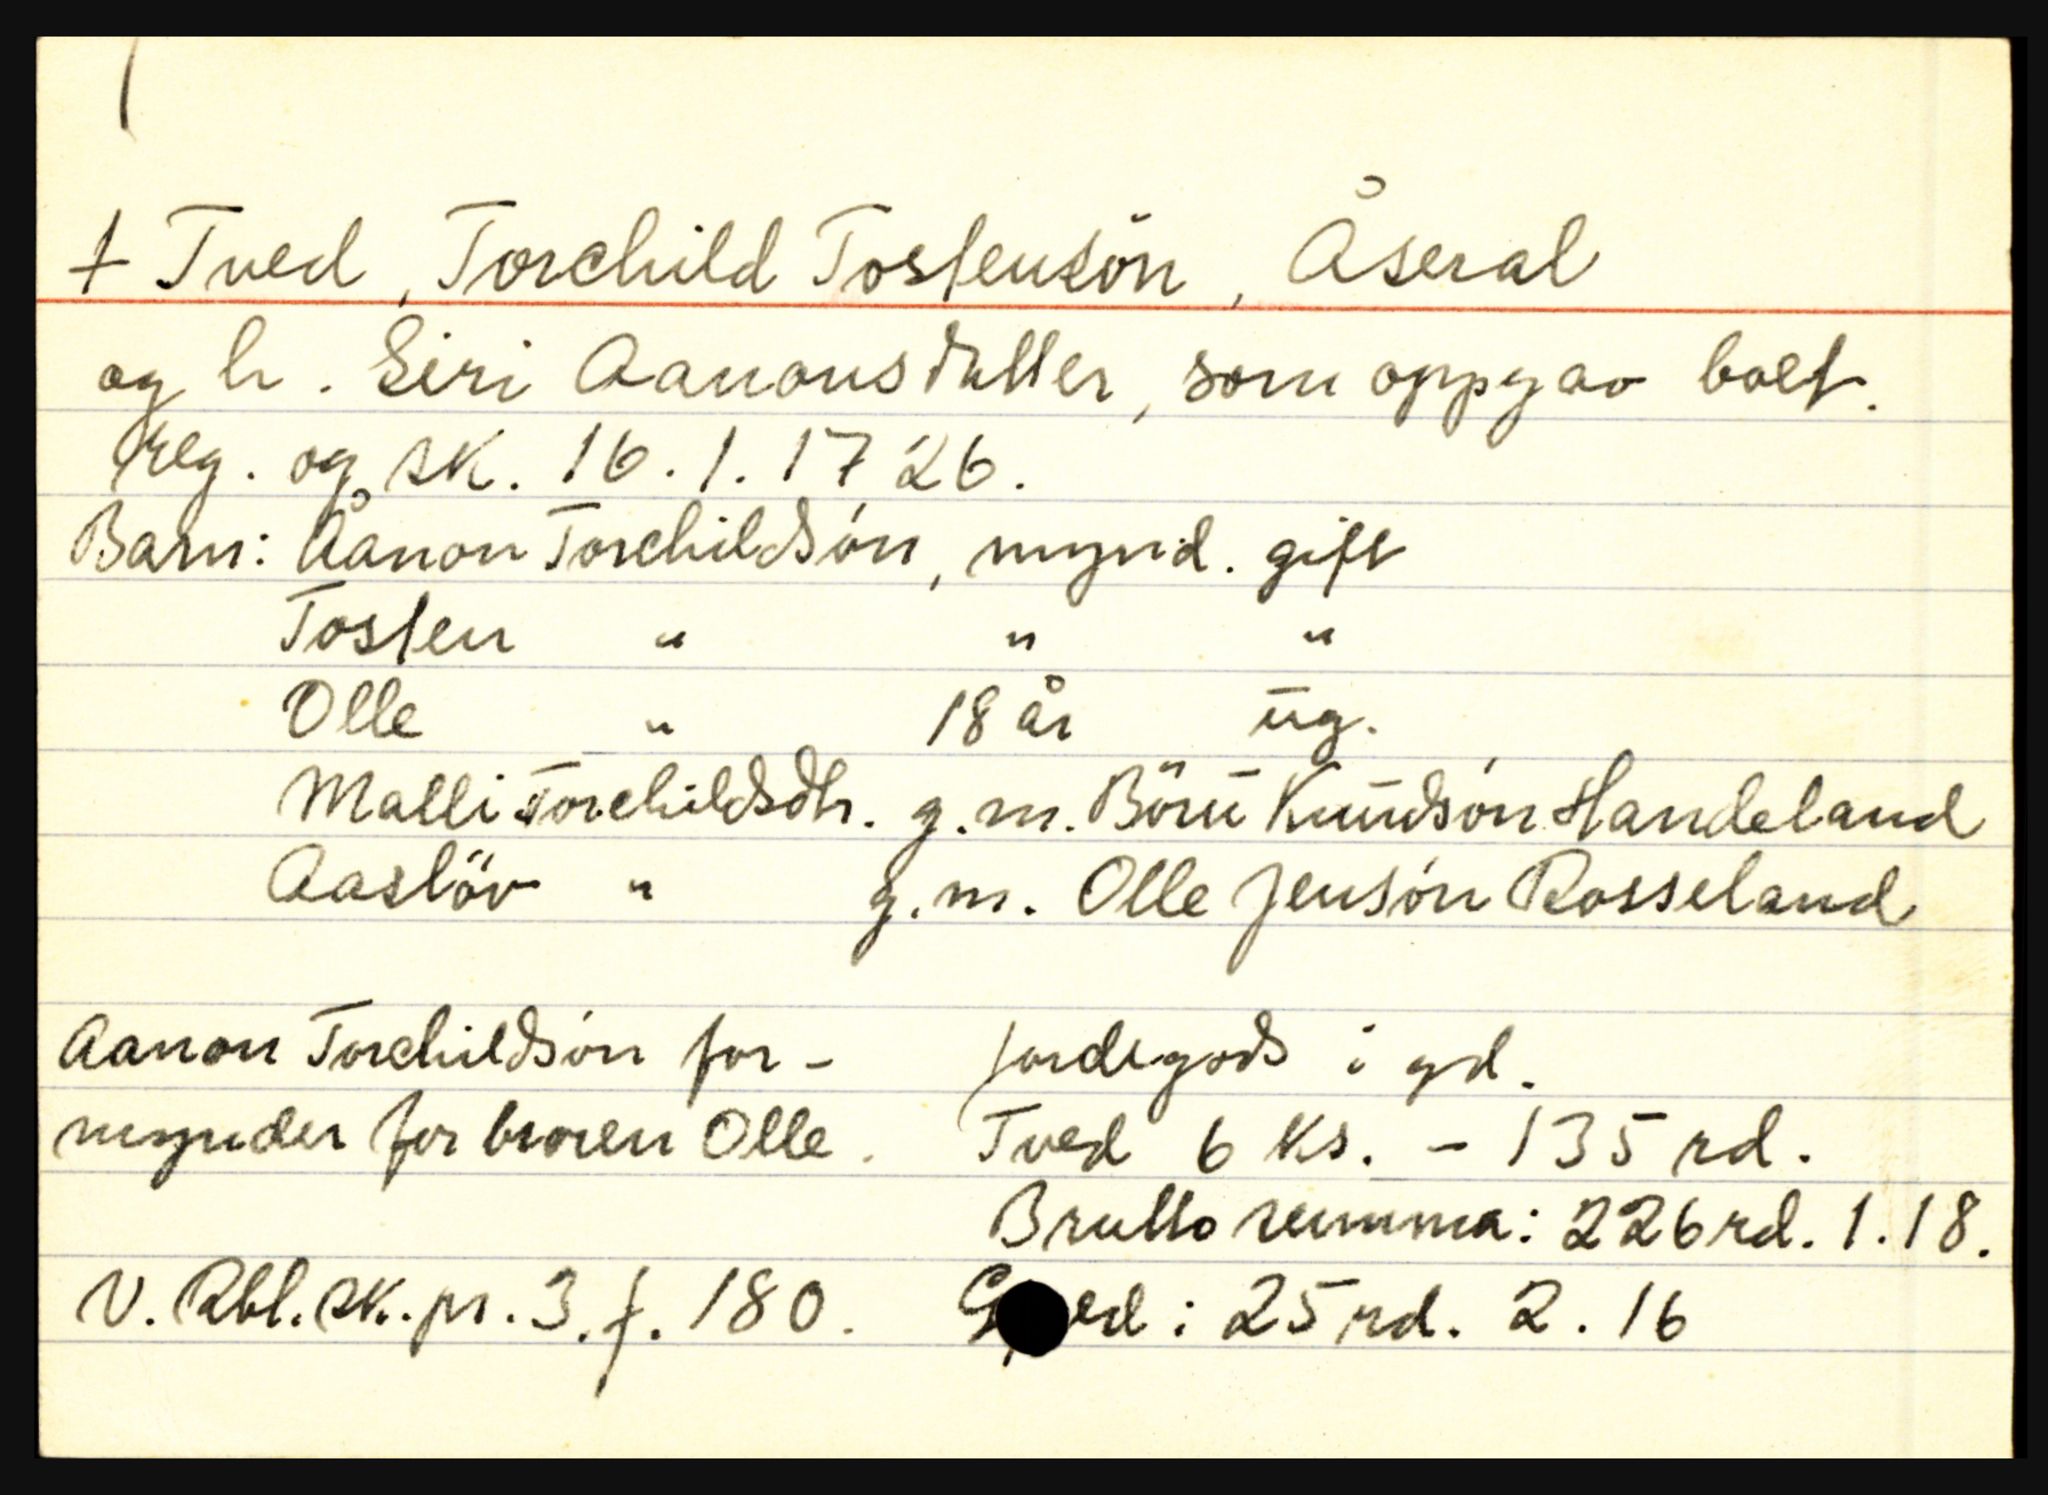 † Tved, Torchild Tostensön, Åseral
og h. Siri Aanonsdatter, som oppgav boet.
reg. og sk. 16.1.1726.
Barn: Åanon Torchildsön, mynd. gift
Tosten " " "
Olle " 18 år ug.
Malli Torchildsdtr. g.m. Böru Knudsön Handeland
Aaslöv " g.m. Olle Jensön Rosseland
Aanon Torchildsön for-
mynder for broren Olle.
V. Rbl. sk. pr. 3. f. 180.
Jordegods i gd.
Tved 6 ks. - 135 rd.
Brutto summa: 226 rd. 1.18.
: 25 rd. 2.16